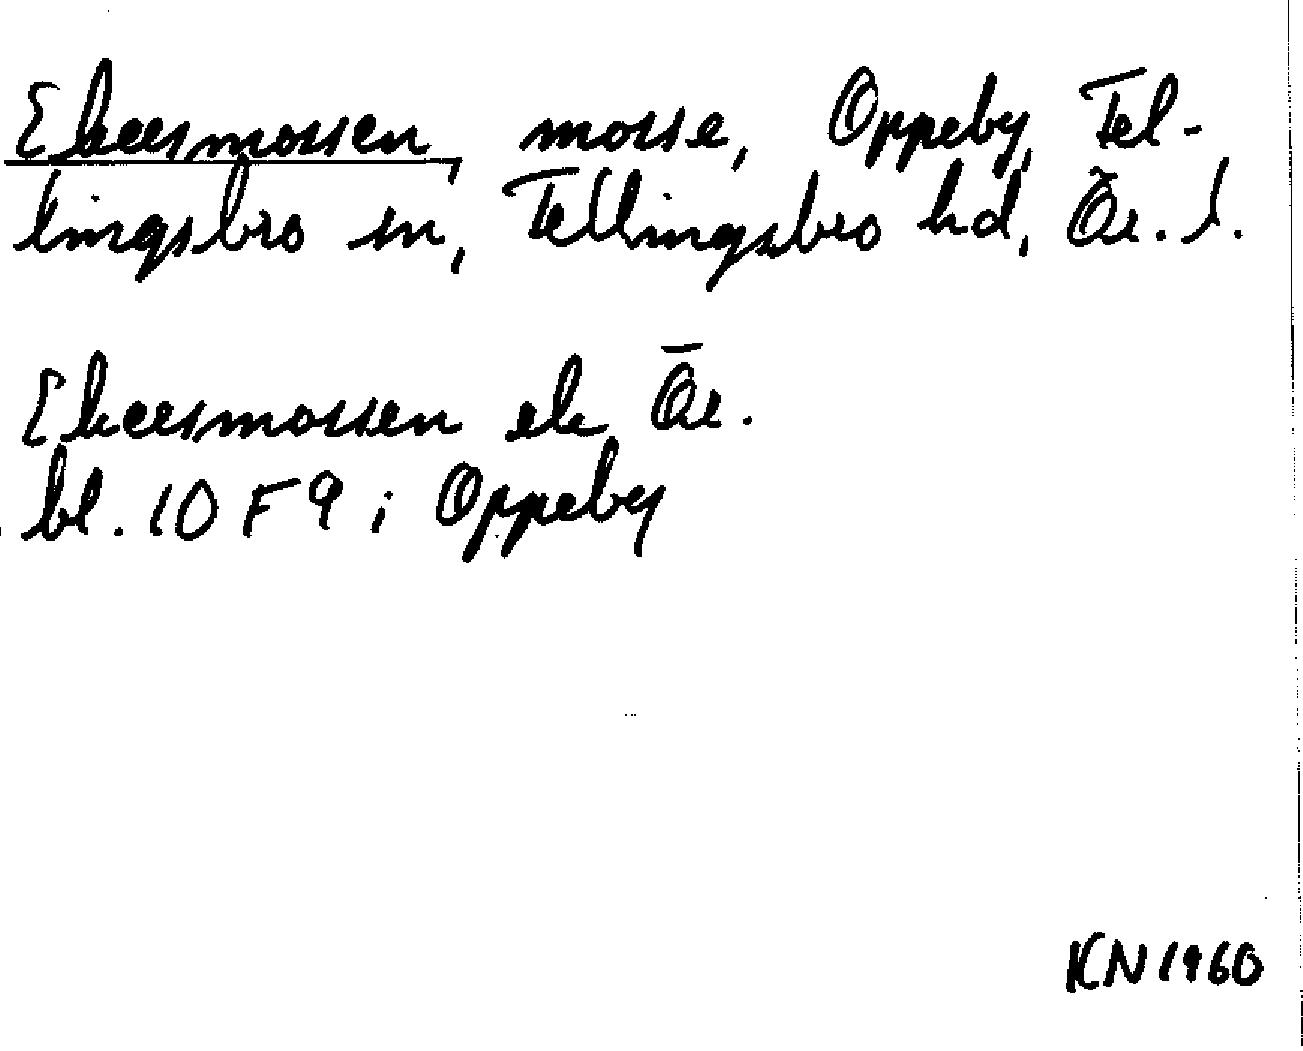 Ekersmossen, mosse, Oppeby, Fel-
lingsbro sn, Fellingsbro hd, Ör. l.
Ekersmossen ek Ör.
bl. 10 F 9 i Oppeby
KN 1960